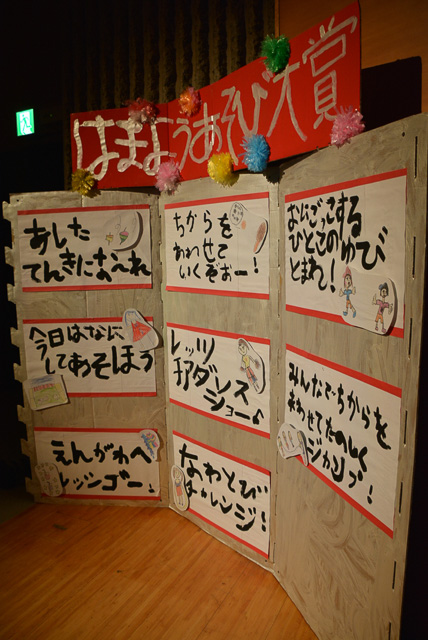 はまようあそび大賞
あした
てんきになぁ〜れ
今日はなに
してあそぼう
えんがわへ
レッツゴー!
ちからを
あわせて
いくぞぉー!
レッツ
ダンス
ショー♪
なわとび
チャレンジ!
おにごっこする
ひとこのゆび
とまれ!
みんなでちからを
あわせてたのしく
ジャンプ!